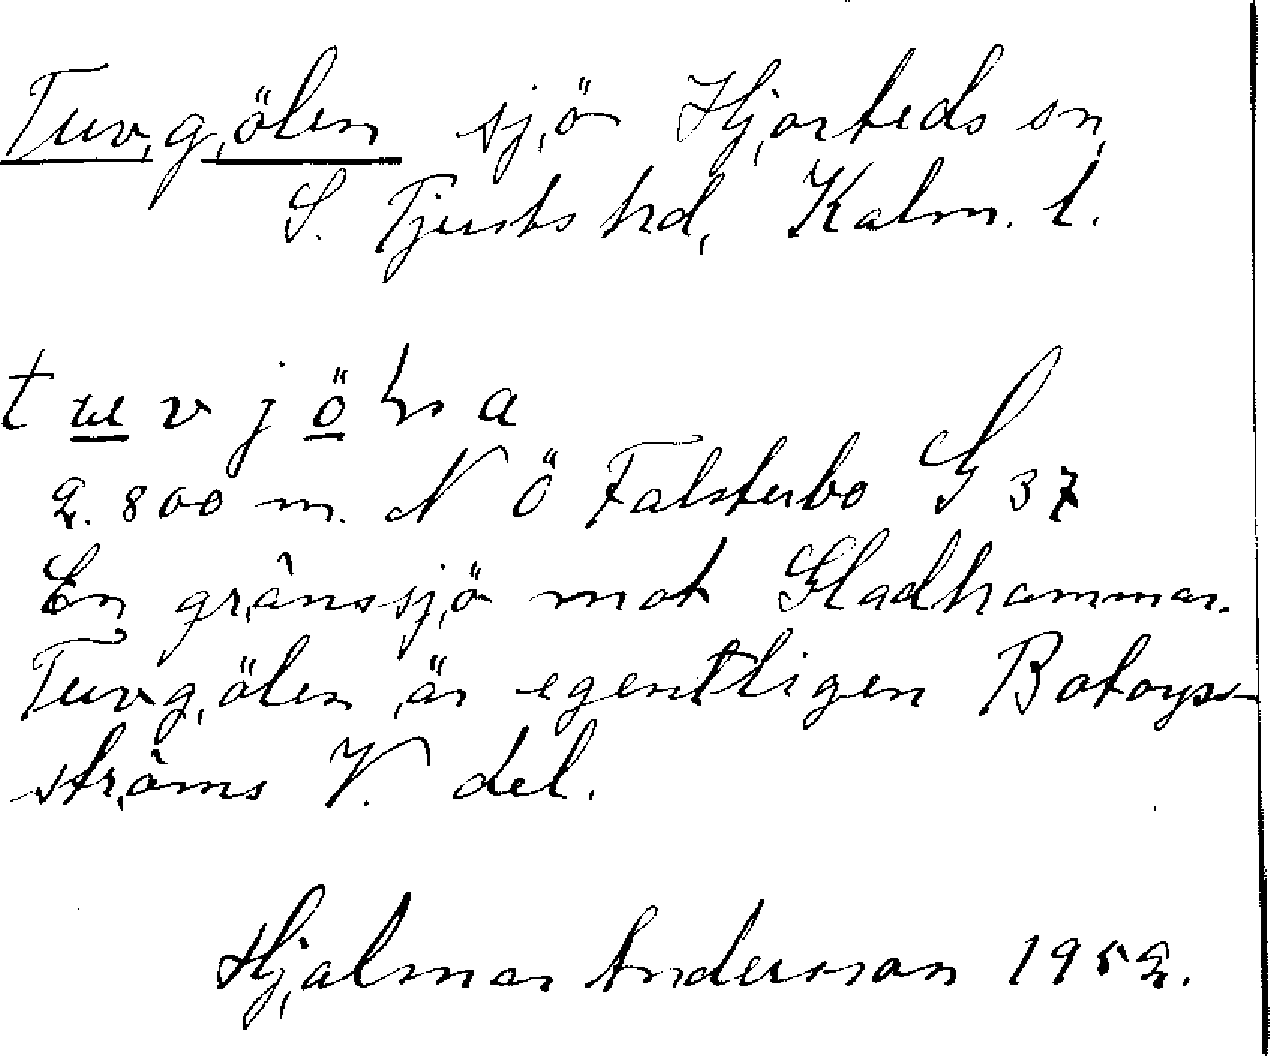 Tuvgölen sjö Hjorteds sn,
S. Tjusts hd, Kalm. l.
t u v j ö l a
2.800 m. N Ö Falsterbo G 37
En gränssjö mot Gladhammar.
Tuvgölen är egentligen Botorps-
ströms V. del.
Hjalmar Andersson 1952.